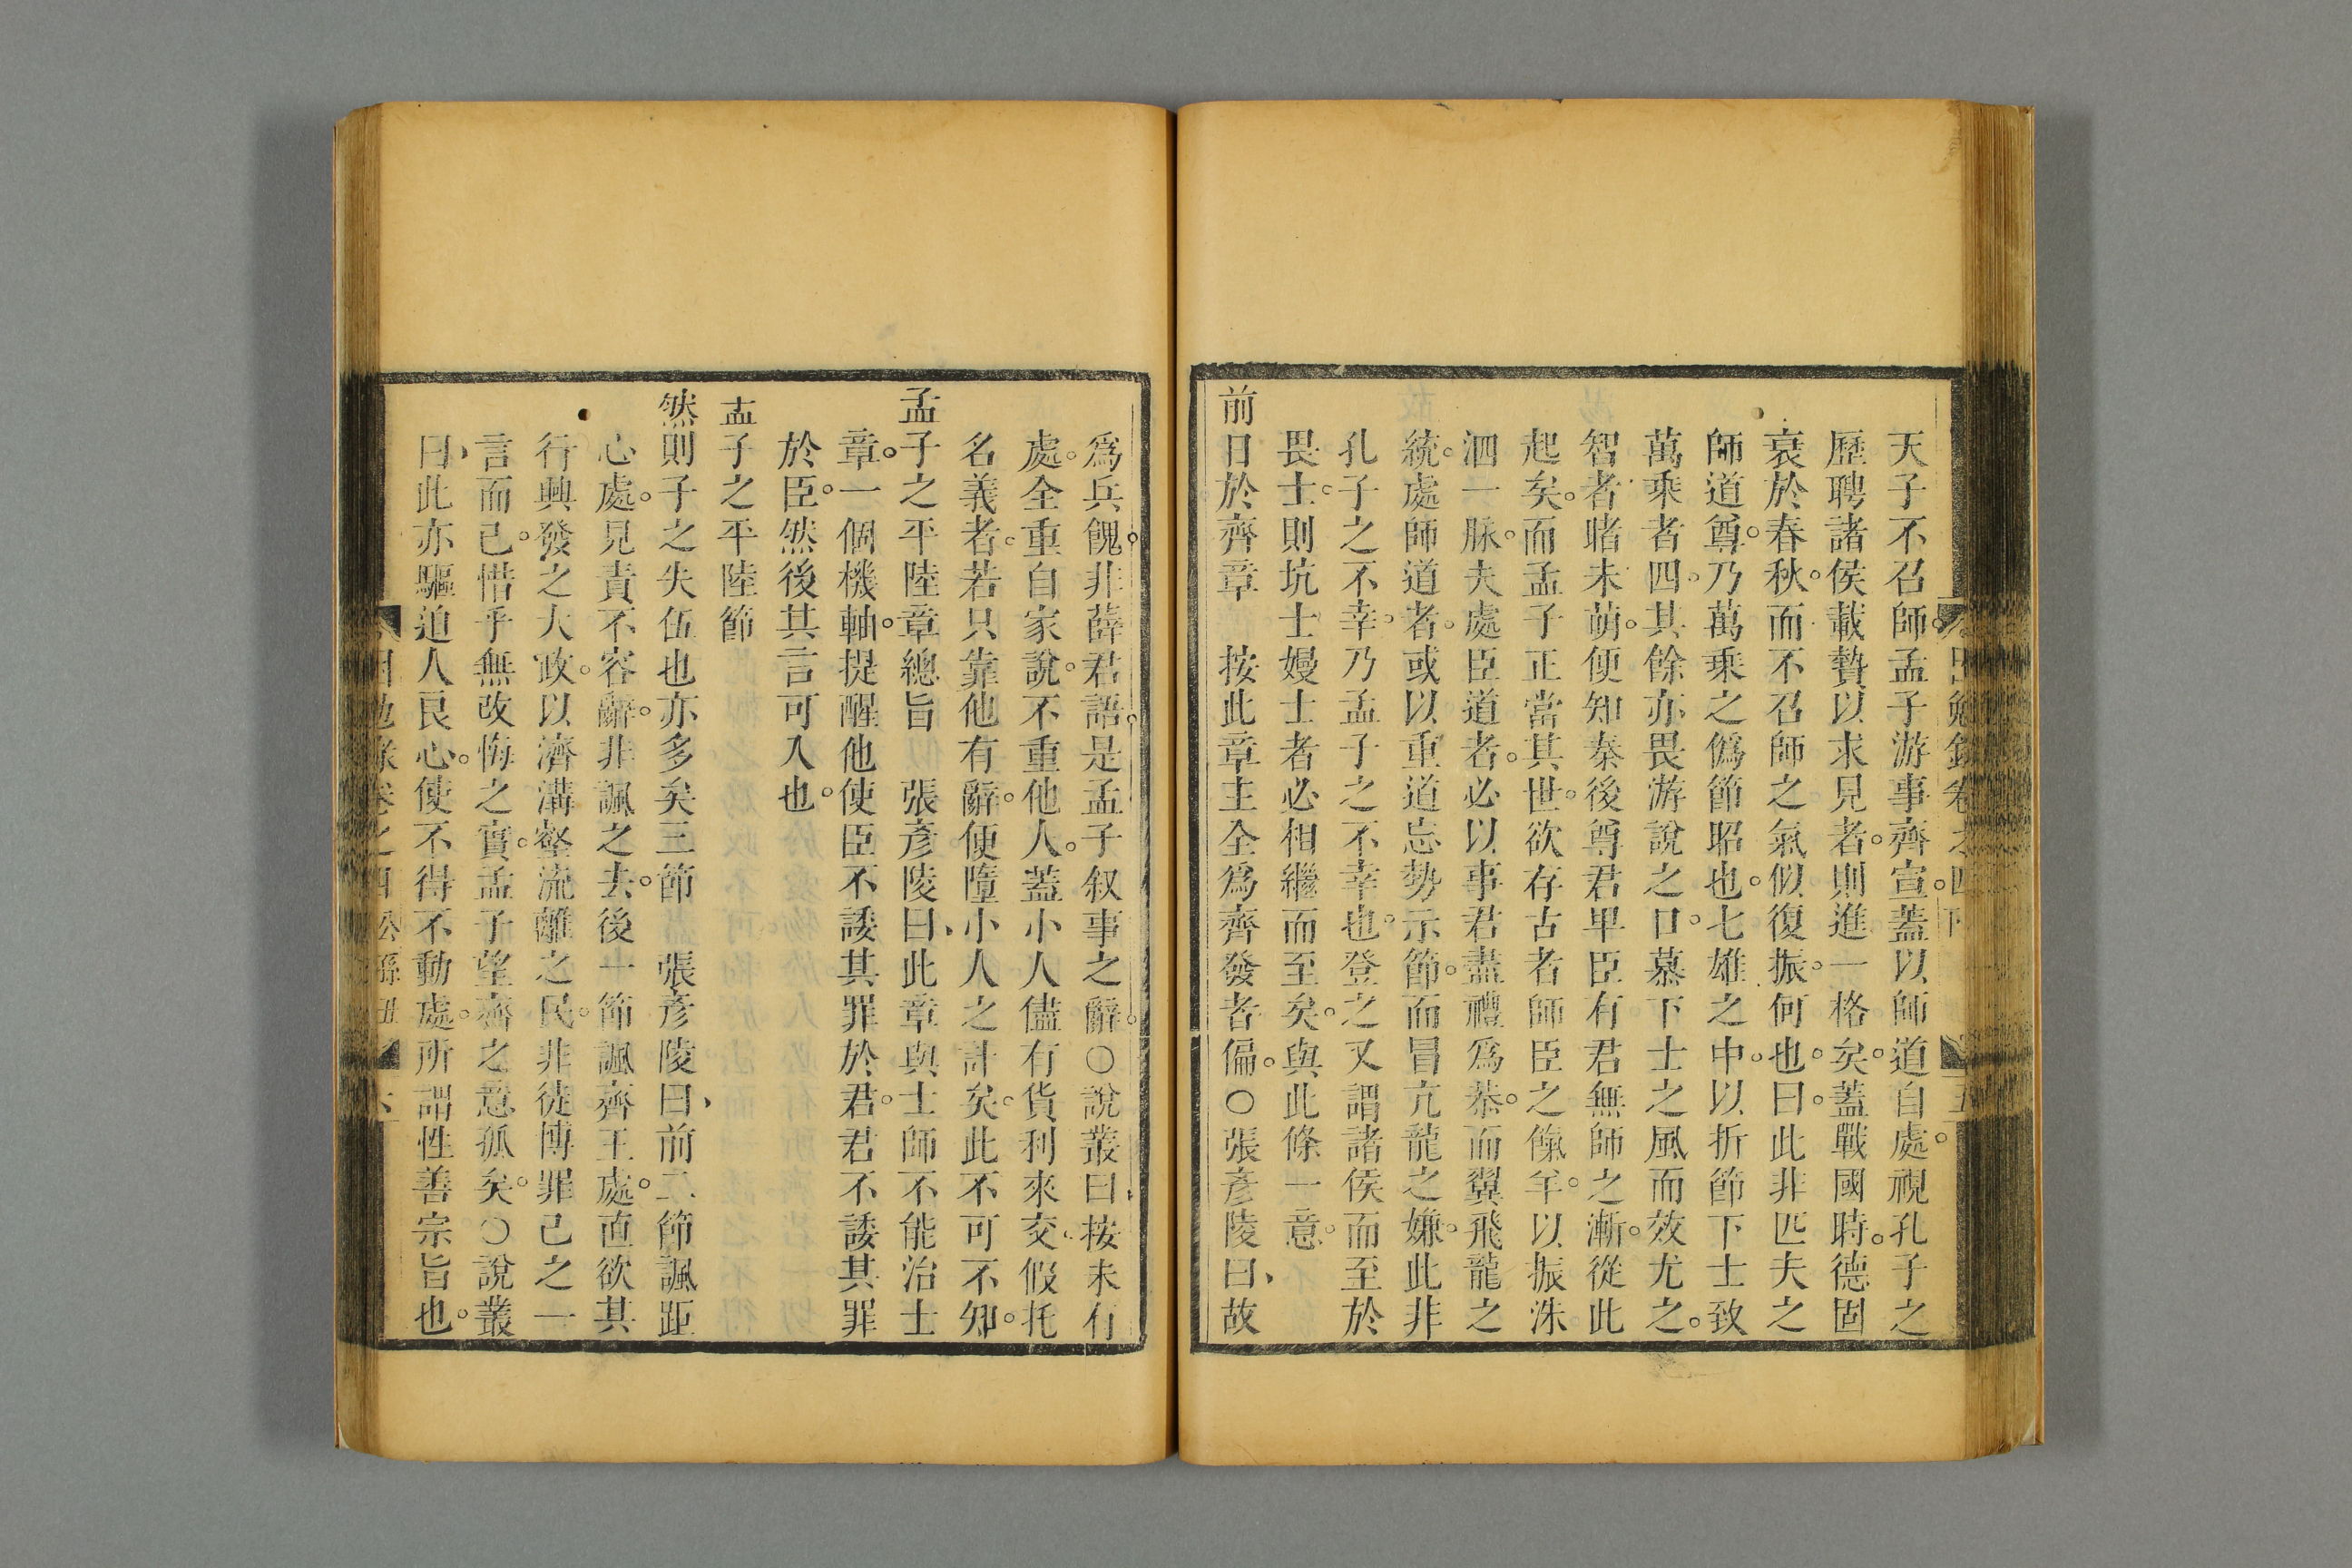 天子不召師。孟子游事齊宣。蓋以師道自處。視孔子之
歷聘諸侯載贄以求見者。則進一格矣。蓋戰國時。德固
衰於春秋。而不召師之氣似復振。何也。曰。此非匹夫之
師道尊。乃萬乘之僞節昭也。七雄之中。以折節下士致
萬乘者四。其餘亦畏游說之口。慕下士之風而效尤之。
智者睹未萌。便知秦後尊君卑臣有君無師之漸。從此
起矣。而孟子正當其世。欲存古者師臣之餼羊。以振洙
泗一脉。夫處臣道者。必以事君盡禮爲恭。而翼飛龍之
統。處師道者。或以重道忘勢示節。而冒亢龍之嫌。此非
孔子之不幸。乃孟子之不幸也。登之又謂諸侯而至於
畏士。則坑士嫚士者必相繼而至矣。與此條一意。
前日於齊章　按此章主全爲齊發者偏。○張彥陵曰、故
爲兵餽。非薛君語。是孟子叙事之辭。○說叢曰、按未有
處。全重自家說。不重他人。蓋小人儘有貨利來交、假托
名義者。若只靠他有辭。便墮小人之計矣。此不可不知。
孟子之平陸章總旨　張彥陵曰、此章與士師不能治士
章。一個機軸。提醒他使臣不諉其罪於君。君不諉其罪
於臣。然後其言可入也。
孟子之平陸節
然則子之失伍也亦多矣三節　張彥陵曰、前二節諷距
心處。見責不容辭。非諷之去。後一節諷齊王處。直欲其
行興發之大政。以濟溝壑流離之民。非徒博罪己之一
言而已。惜乎無改悔之實。孟子望齊之意孤矣。○說叢
曰、此亦驅迫人良心。使不得不動處。所謂性善宗旨也。